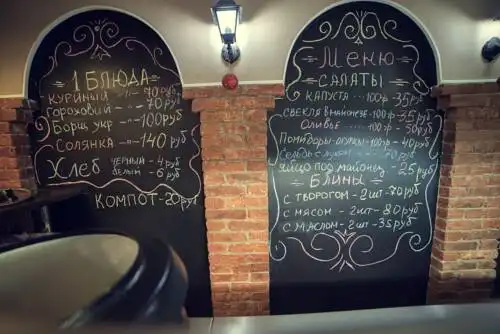 1 БЛЮДА
КУРИНЫЙ - 70 руб
ГОРОХОВИЙ - 70 руб
Борщ укр - 100 руб
СОЛЯНКА - 140 руб
Хлеб ЧЕРНЫЙ - 4 руб
БЕЛЫЙ - 6 руб
КОМПОТ - 20 руб
Меню
САЛАТЫ
КАПУСТА 100гр 35 руб
СВЕКЛА В МАЙОНЕЗЕ 100гр 35 руб
ОЛИВЬЕ 100гр 50 руб
Помидоры-огурцы 100гр - 40 руб
Сельдь с луком 70 руб
Яйцо под майонез - 25 руб
БЛИНЫ
С ТВОРОГОМ - 2шт - 70 руб
С МЯСОМ - 2шт - 80 руб
С МАСЛОМ - 2шт - 35 руб